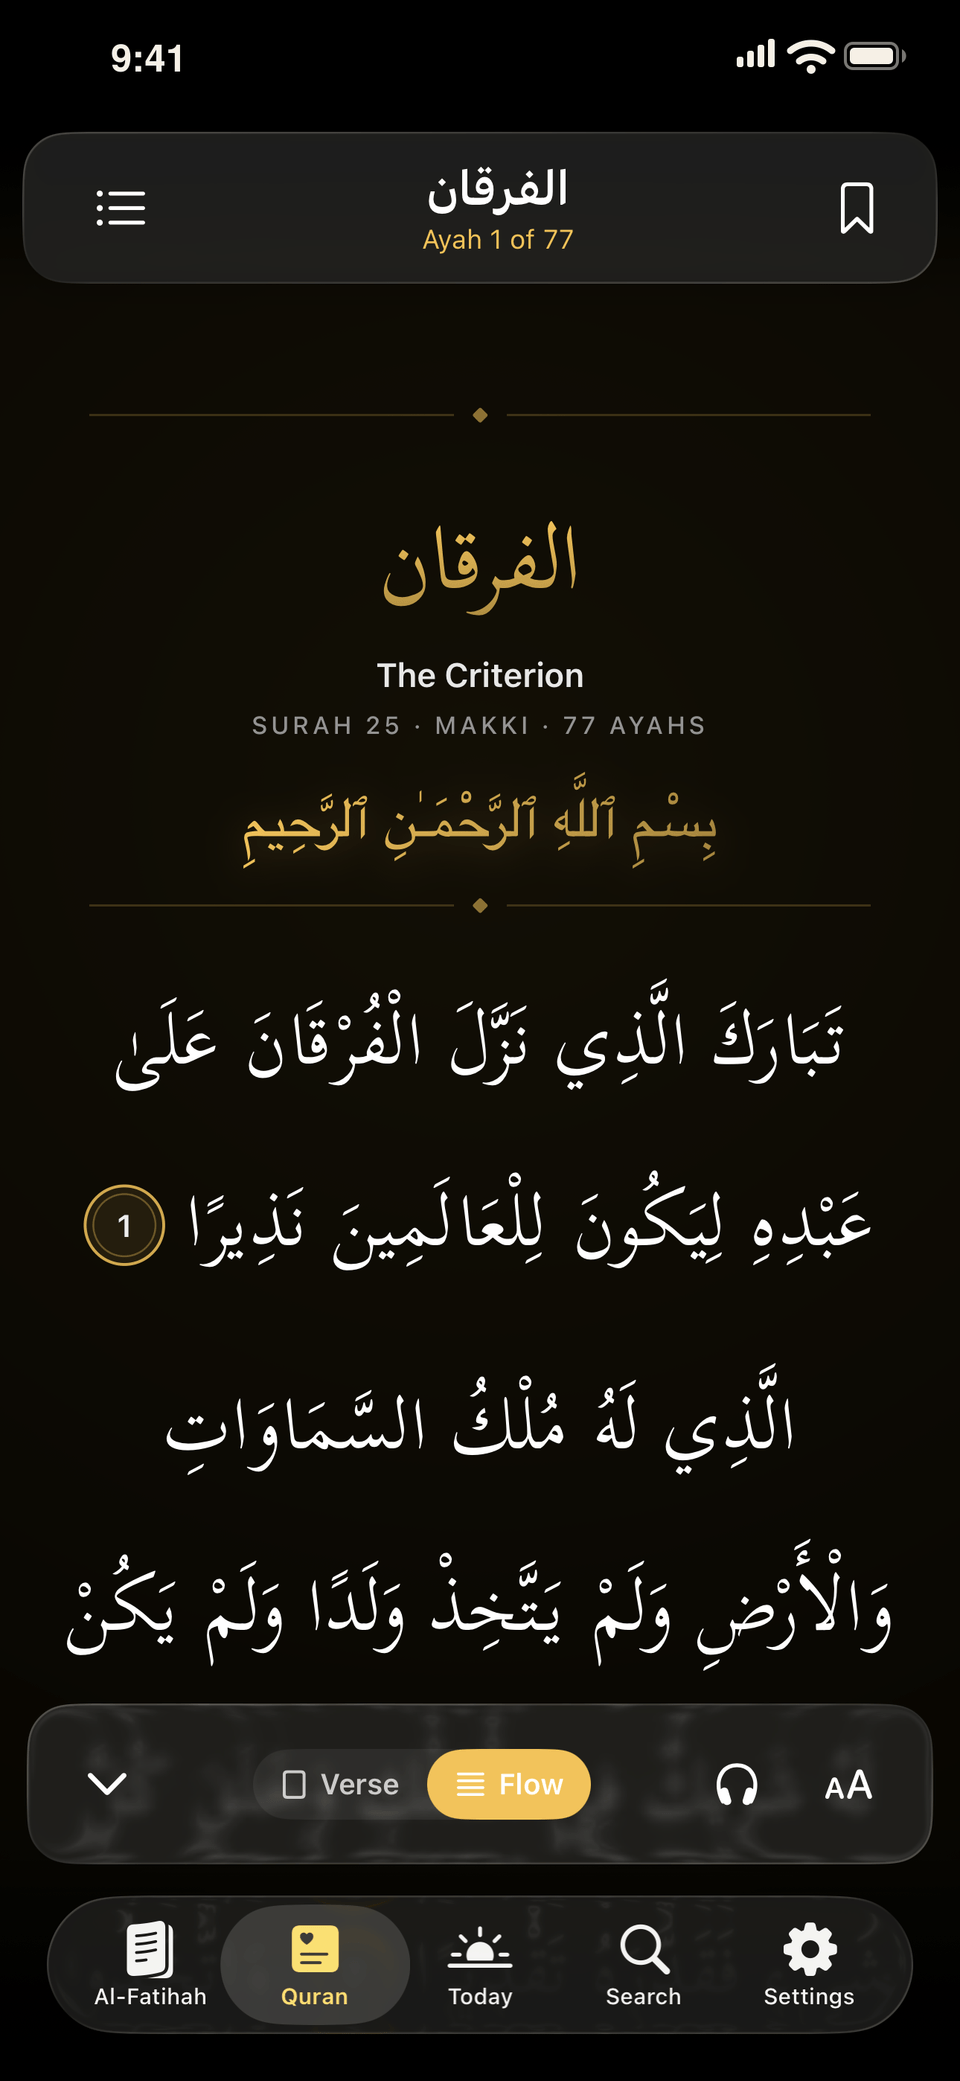 9:41
الفرقان
Ayah 1 of 77
الفرقان
The Criterion
SURAH 25 · MAKKI · 77 AYAHS
بِسْمِ ٱللَّهِ ٱلرَّحْمَـٰنِ ٱلرَّحِيمِ
تَبَارَكَ الَّذِي نَزَّلَ الْفُرْقَانَ عَلَىٰ
عَبْدِهِ لِيَكُونَ لِلْعَالَمِينَ نَذِيرًا 1
الَّذِي لَهُ مُلْكُ السَّمَاوَاتِ
وَالْأَرْضِ وَلَمْ يَتَّخِذْ وَلَدًا وَلَمْ يَكُنْ
Verse Flow AA
Al-Fatihah Quran Today Search Settings